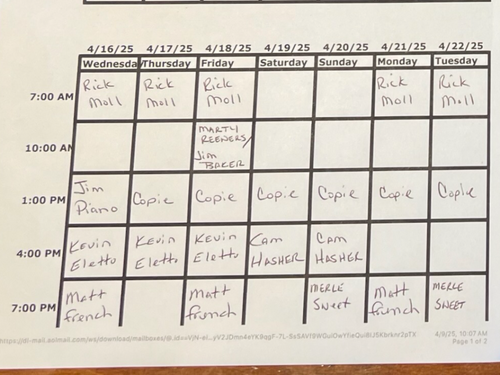 4/16/25 4/17/25 4/18/25 4/19/25 4/20/25 4/21/25 4/22/25
Wednesda Thursday Friday Saturday Sunday Monday Tuesday
7:00 AM
Rick Rick Rick Rick Rick
Moll Moll Moll Moll Moll
10:00 AM
MARTY
REENERS/
Jim
BAKER
1:00 PM
Jim
Piano Copie Copie Copie Copie Copie Copie
4:00 PM
Kevin Kevin Kevin Cam Cam
Eletto Eletto Eletto HASHER HASHER
7:00 PM
Matt Matt MERLE Matt MERLE
French French Sweet French SWEET
4/9/25, 10:07 AM
Page 1 of 2